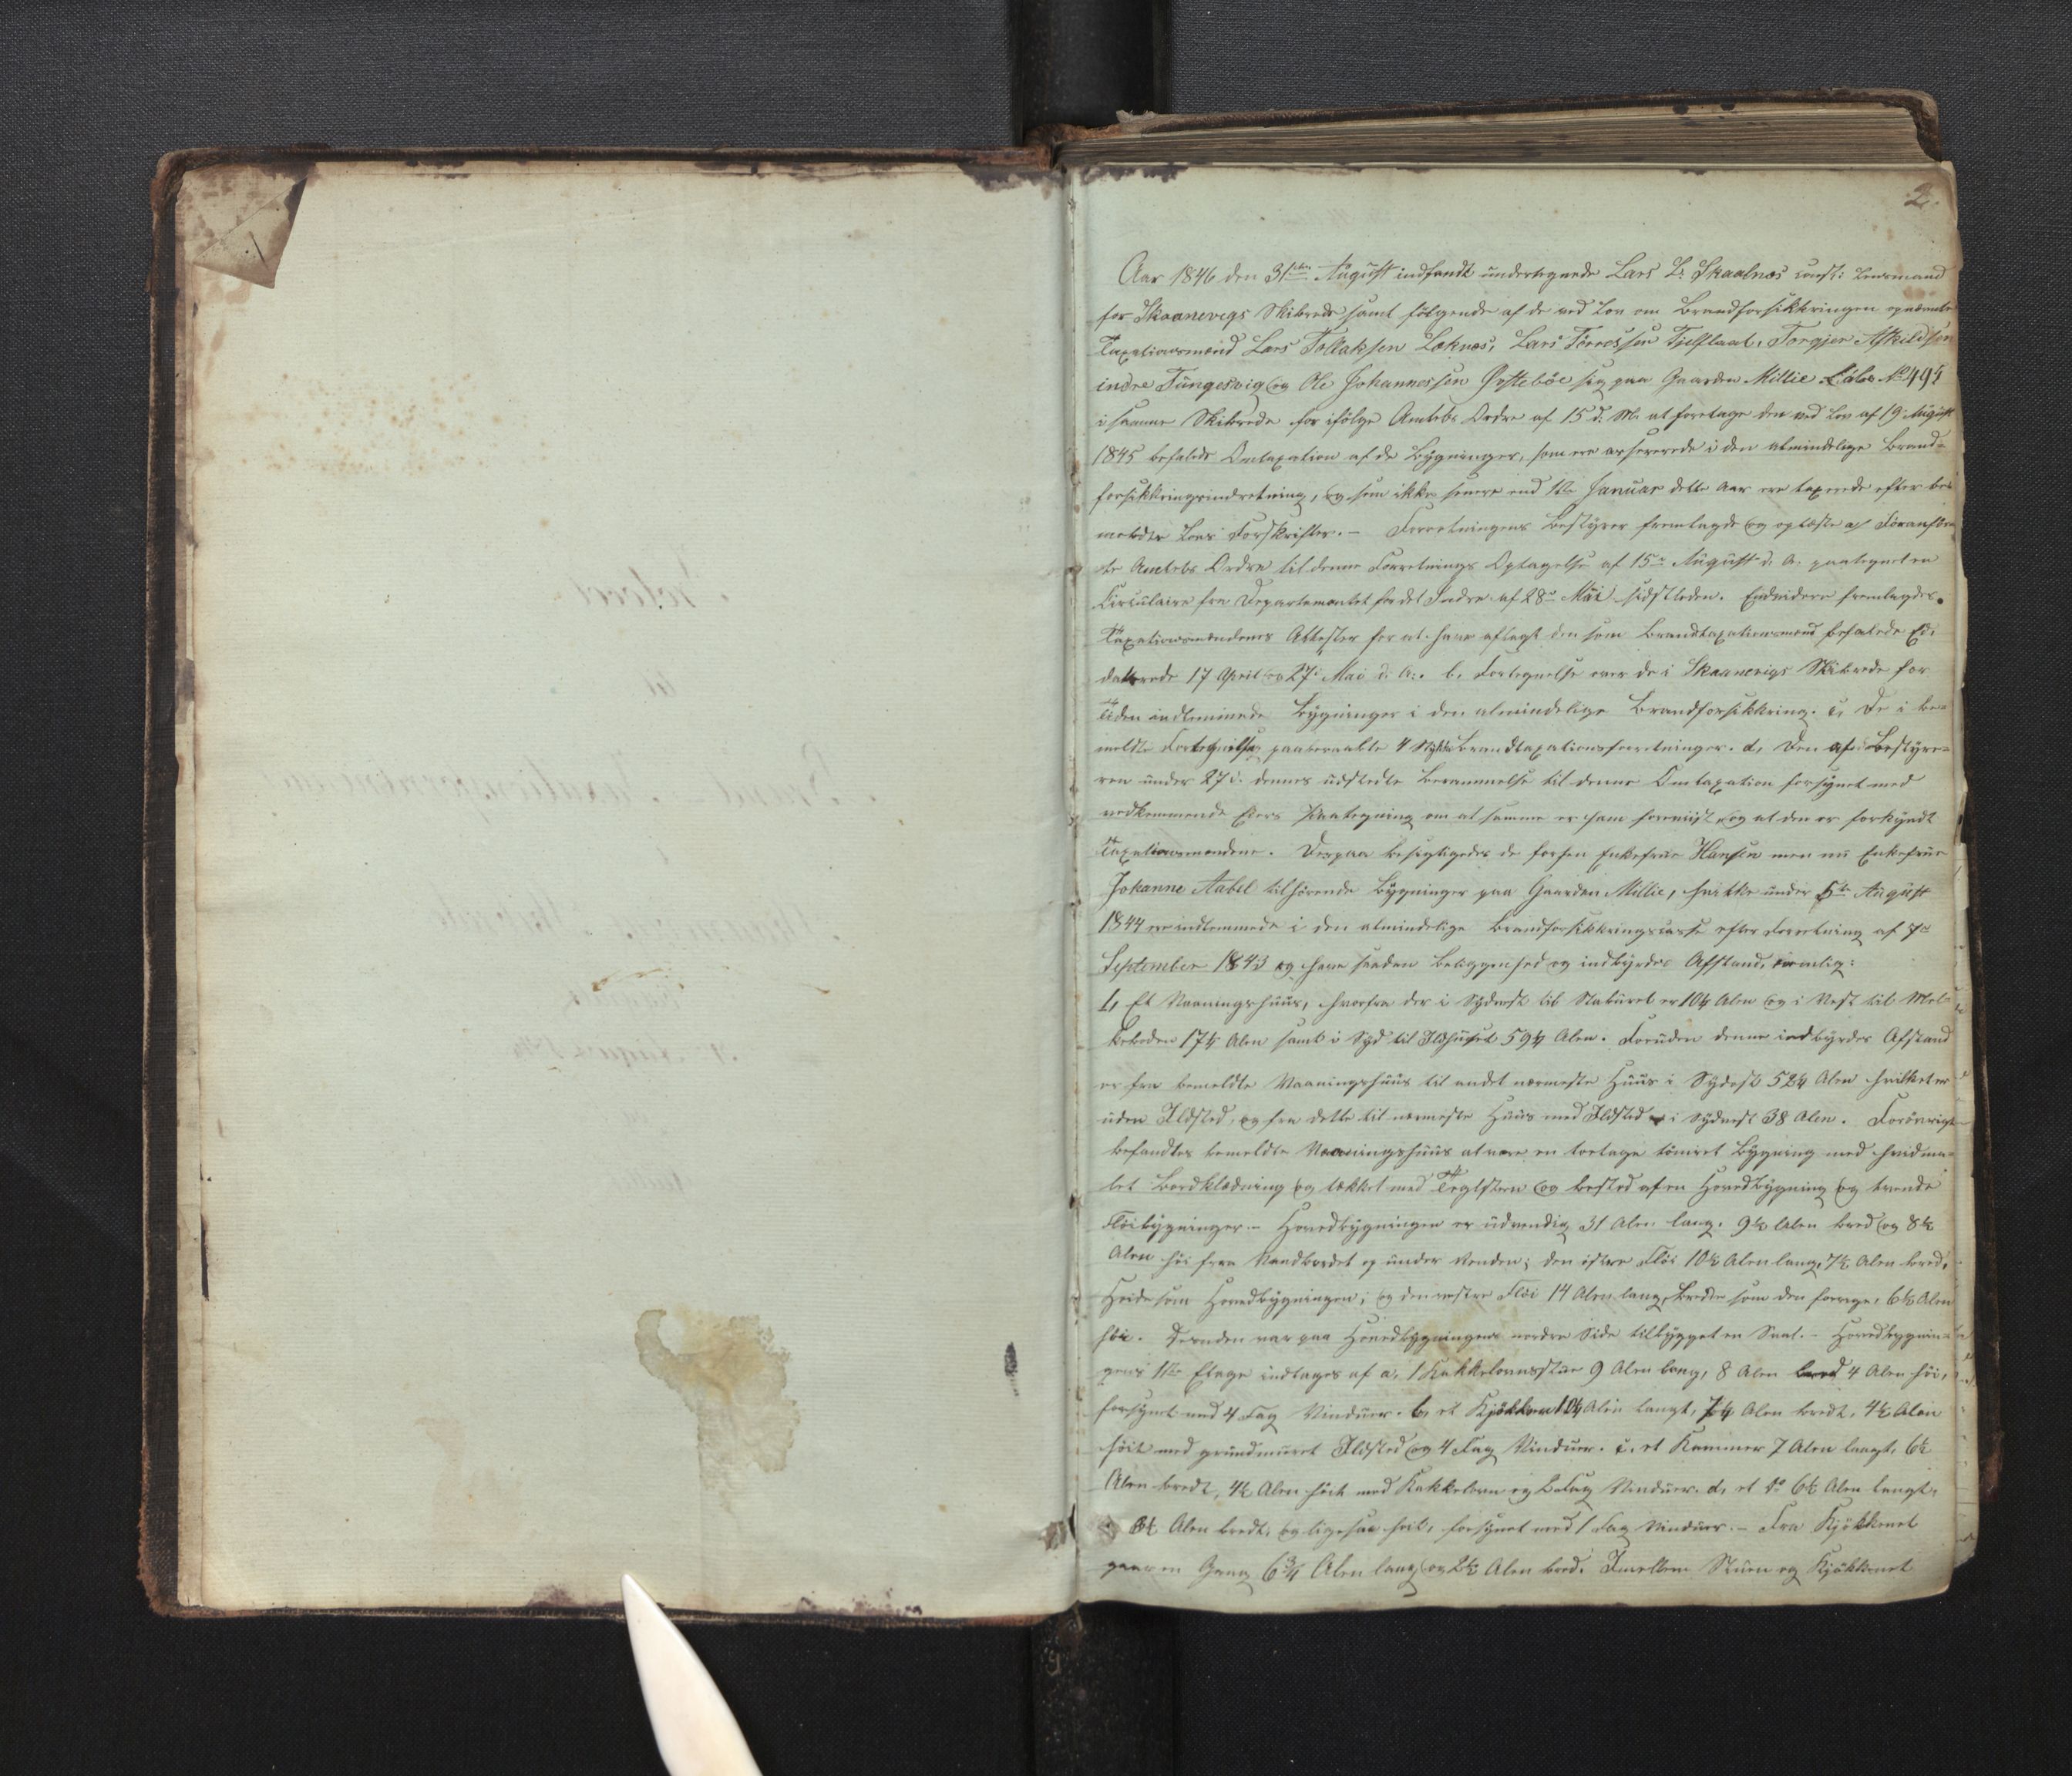 2.
Aar 1846 den 31te August indfandt undertegnede Lars L. Skaalnes const: Lensmand
for Skaanevigs Skibrede samt følgende af de ved Lov om Brandforsikkringen opnævnte
Taxationsmænd Lars Tollaksen Læknes, Lars Tørressen Fjelflaat, Torgier Askildsen
indre Tungesvig og Ole Johannessen Øystebøe sig paa Gaarden Millie Løbe No 494
i samme Skibrede for ifølge Amtets Ordre af 15 d. M. at foretage den ved Lov af 19 August
1845 befalede Omtaxation af de Bygninger, som ere assurerede i den almindelige Brand=
forsikkringsindretning, og som ikke senere end 1te Januar dette Aar ere taxerede efter be=
meldte Lovs Forskrifter. – Forretningens Bestyrer fremlagde og oplæste a, Foranfør=
te Amtets Ordre til denne Forretnings Optagelse af 15de August d. A. paategnet en
Circulaire fra Departementet for det Indre af 28de Mai sidstleden. Endvidere fremlagdes
Taxationsmændenes Attester for at have aflagt den som Brandtaxationsmænd befalede Ed,
daterede 17 April og 27 Mai d. A. b, Fortegnelse over de i Skaanevigs Skibrede for
Tiden indlemmede Bygninger i den almindelige Brandforsikkring. c, De i be=
meldte Fortegnelse paaberaabte 4 Stykker Brandtaxationsforretninger. d, Den af Bestyre=
ren under 27 d. dennes udstedte Berammelse til denne Omtaxation forsynet med
vedkommende Eiers Paategning om at samme er ham foreviist og at den er forkyndt
Taxationsmændene. Derpaa besigtigedes de forhen Enkefrue Hansen men nu Enkefrue
Johanne Aabel tilhørende Bygninger paa Gaarden Millie, hvilke under 5te August
1844 ere indlemmede i den almindelige Brandforsikkringscasse efter Forretning af 7de
September 1843 og have saadan Beliggenhed og indbyrdes Afstand, nemlig:
1, Et Vaaningshuus, hvorfra der i Sydvest til Staburet er 10¼ Alen og i Vest til Mel=
keboden 17¼ Alen samt i Syd til Ildhuset 59¼ Alen. Foruden denne indbyrdes Afstand
er fra bemeldte Vaaningshuus til andet nærmeste Huus i Sydost 52¼ Alen hvilket er
uden Ildsted, og fra dette til nærmeste Huus med Ildsted i Sydvest 38 Alen. Forøvrigt
befandtes bemeldte Vaaningshuus at være en toetage tømret Bygning med hvidma=
let Bordklædning og tækket med Teglsteen og bestod af en Hovedbygning og tvende
Fløibygninger. – Hovedbygningen er udvendig 31 Alen lang, 9½ Alen bred og 8½
Alen høi fra Vandbordet og under Renden; den østre Fløi 10½ Alen lang, 7½ Alen bred,
Høide som Hovedbygningen; og den vestre Fløi 14 Alen lang, Bredde som den forrige, 6½ Alen
høi. Desuden var paa Hovedbygningens nordre Side tilbygget en Sval. – Hovedbygnin=
gens 1te Etage indtages af a, 1 Kakkelovnsstue 9 Alen lang, 8 Alen bred 4 Alen høi,
forsynet med 4 Fag Vinduer. b, et Kjøkken 10¼ Alen langt, 7¼ Alen bredt, 4½ Alen
høit med grundmuret Ildsted og 4 Fag Vinduer. c, et Kammer 7 Alen langt, 6½
Alen bredt, 4½ Alen høit med Kakkelovn og 2 Fag Vinduer. d, et do 6½ Alen langt,
3½ Alen bredt, og ligesaa høit, forsynet med 1 Fag Vinduer. – Fra Kjøkkenet
gaar en Gang 6¾ Alen lang og 2½ Alen bred. Imellem Stuen og Kjøkkenet